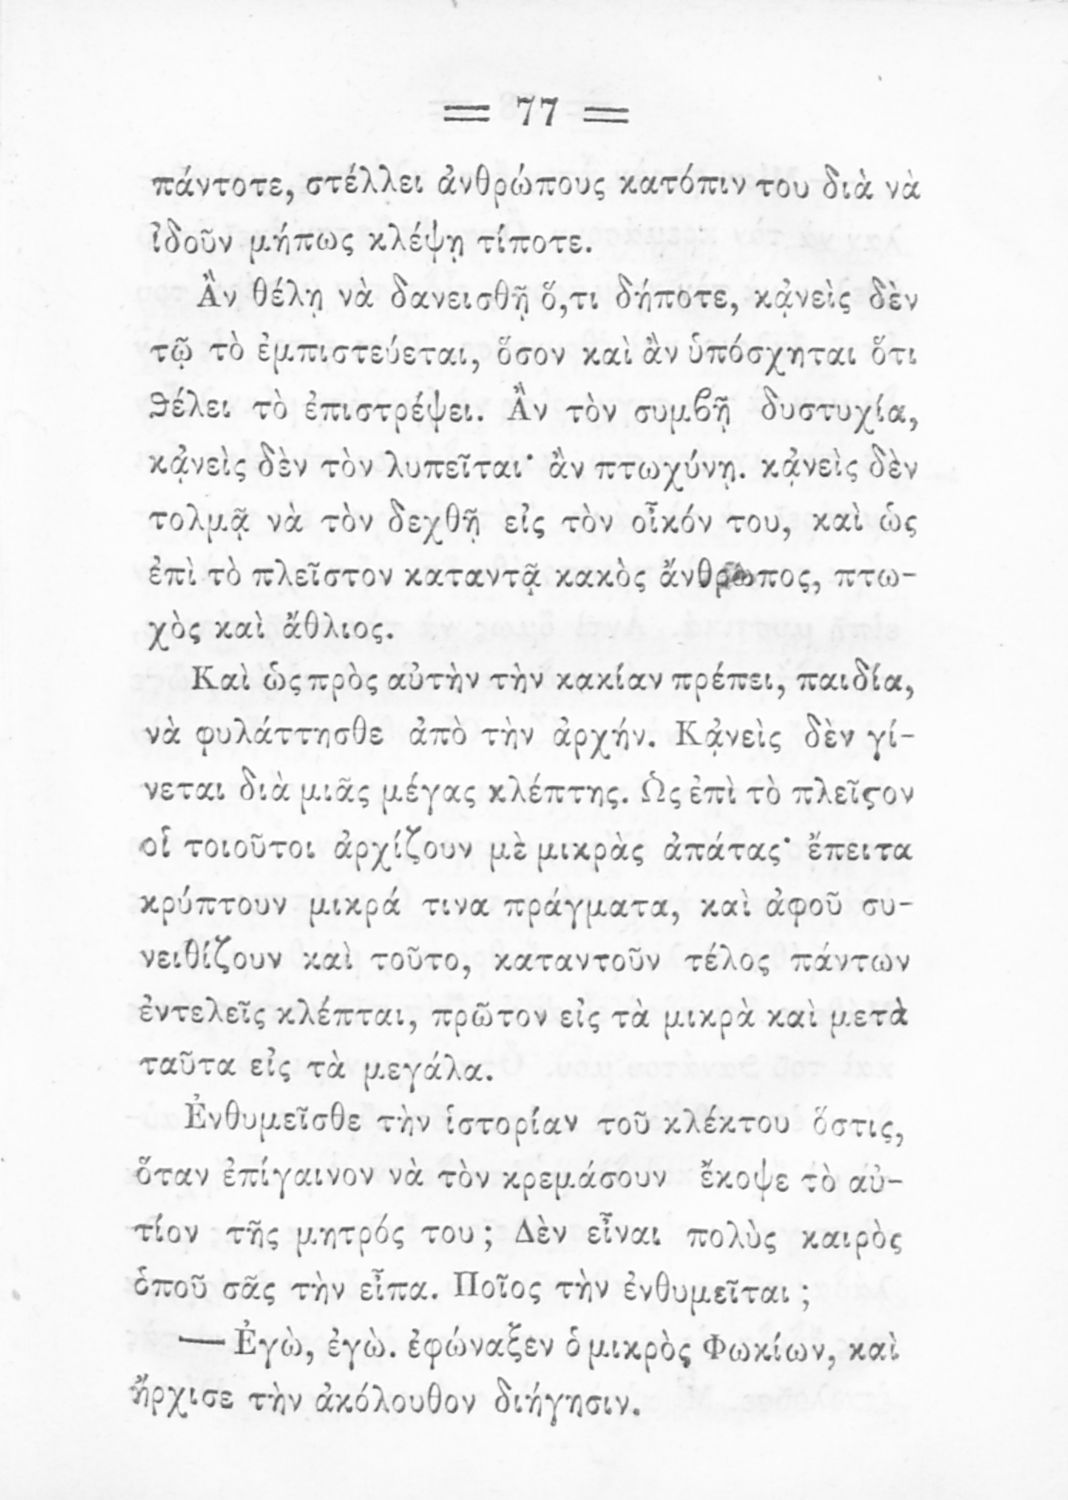 = 77 =
πάντοτε, στέλλει ἀνθρώπους κατόπιν του διὰ νὰ
ἰδοῦν μήπως κλέψῃ τίποτε.
Ἂν θέλῃ νὰ δανεισθῇ ὅ,τι δήποτε, κᾀνεὶς δὲν
τῷ τὸ ἐμπιστεύεται, ὅσον καὶ ἂν ὑπόσχηται ὅτι
ϑέλει τὸ ἐπιστρέψει. Ἂν τὸν συμϐῇ δυστυχία,
κᾀνεὶς δὲν τὸν λυπεῖται· ἂν πτωχύνῃ. κᾀνεὶς δὲν
τολμᾷ νὰ τὸν δεχθῇ εἰς τὸν οἶκόν του, καὶ ὡς
ἐπὶ τὸ πλεῖστον καταντᾷ κακὸς ἄνθρωπος, πτω-
χὸς καὶ ἄθλιος.
Καὶ ὡς πρὸς αὐτὴν τὴν κακίαν πρέπει, παιδία,
νὰ φυλάττησθε ἀπὸ τὴν ἀρχήν. Κᾀνεὶς δὲν γί-
νεται διὰ μιᾶς μέγας κλέπτης. Ὡς ἐπὶ τὸ πλεῖϛον
οἱ τοιοῦτοι ἀρχίζουν μὲ μικρὰς ἀπάτας· ἔπειτα
κρύπτουν μικρά τινα πράγματα, καὶ ἀφοῦ συ-
νειθίζουν καὶ τοῦτο, καταντοῦν τέλος πάντων
ἐντελεῖς κλέπται, πρῶτον εἰς τὰ μικρὰ καὶ μετὰ
ταῦτα εἰς τὰ μεγάλα.
Ἐνθυμεῖσθε τὴν ἱστορίαν τοῦ κλέκτου ὅστις,
ὅταν ἐπίγαινον νὰ τὸν κρεμάσουν ἔκοψε τὸ αὐ-
τίον τῆς μητρός του; Δὲν εἶναι πολὺς καιρὸς
ὁποῦ σᾶς τὴν εἶπα. Ποῖος τὴν ἐνθυμεῖται;
— Ἐγὼ, ἐγὼ. ἐφώναξεν ὁ μικρὸς Φωκίων, καὶ
ἤρχισε τὴν ἀκόλουθον διήγησιν.